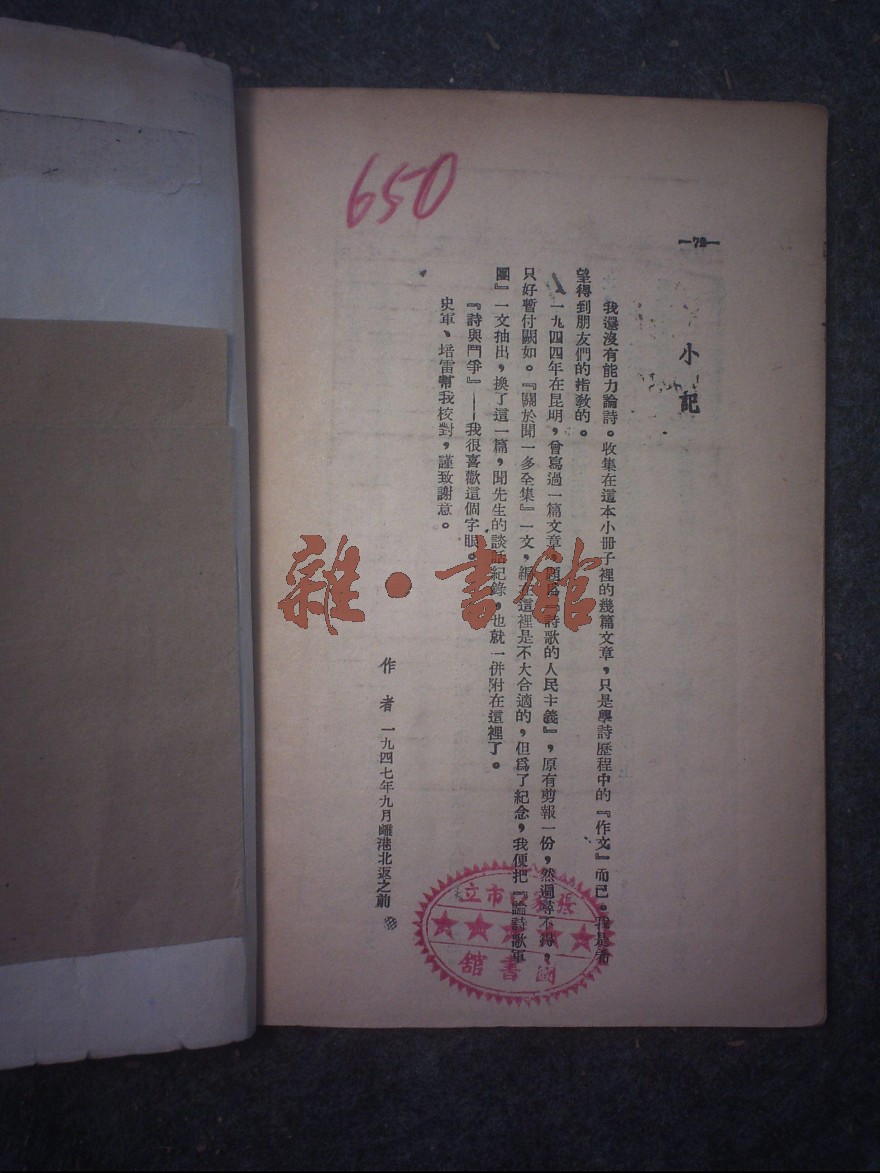 650
—72—
小記
我還沒有能力論詩。收集在這本小冊子裡的幾篇文章，只是學詩歷程中的『作文』而已。我是希
望得到朋友們的指教的。
一九四四年在昆明，曾寫過一篇文章，題爲『詩歌的人民主義』，原有剪報一份，然遍尋不得，
只好暫付闕如。『關於聞一多全集』一文，編在這裡是不大合適的，但爲了紀念，我便把『論詩歌軍
團』一文抽出，換了這一篇，聞先生的談話紀錄，也就一併附在這裡了。
『詩與鬥爭』——我很喜歡這個字眼。
史軍、培雷幫我校對，謹致謝意。
作者 一九四七年九月離港北返之前
雜·書館
張家口市立
圖書館